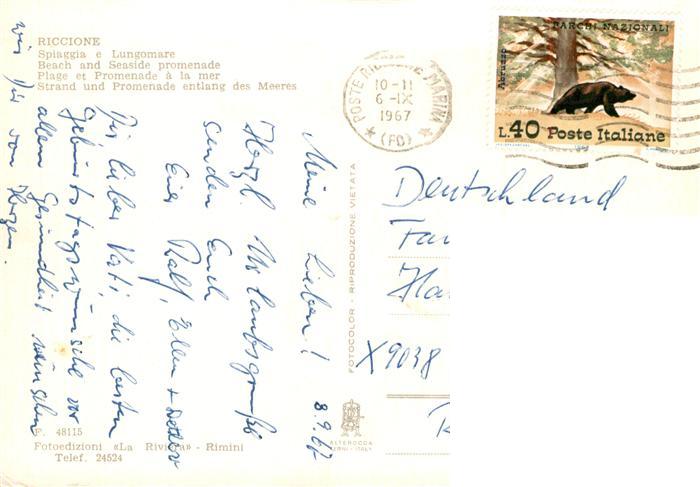 RICCIONE
Spiaggia e Lungomare
Beach and Seaside promenade
Plage et Promenade à la mer
Strand und Promenade entlang des Meeres
POSTE RICCIONE MARINA
10-11
6-IX
1967
(FO)
PARCHI NAZIONALI
Abruzzo
L.40 Poste Italiane
8.9.67
Meine Lieben!
Herzl. Urlaubsgrüße
senden Euch
Eure Ralf, Ellen + Detlev
Dir, lieber Vati, die besten
Geburtstagswünsche vor
allem Gesundheit wünschen
wir Dir von
Herzen.
FOTOCOLOR - RIPRODUZIONE VIETATA
Deutschland
Fa
Ha
X9038
F. 48115
Fotoedizioni «La Riviera» - Rimini
Telef. 24524
ALTEROCCA
TERNI - ITALY